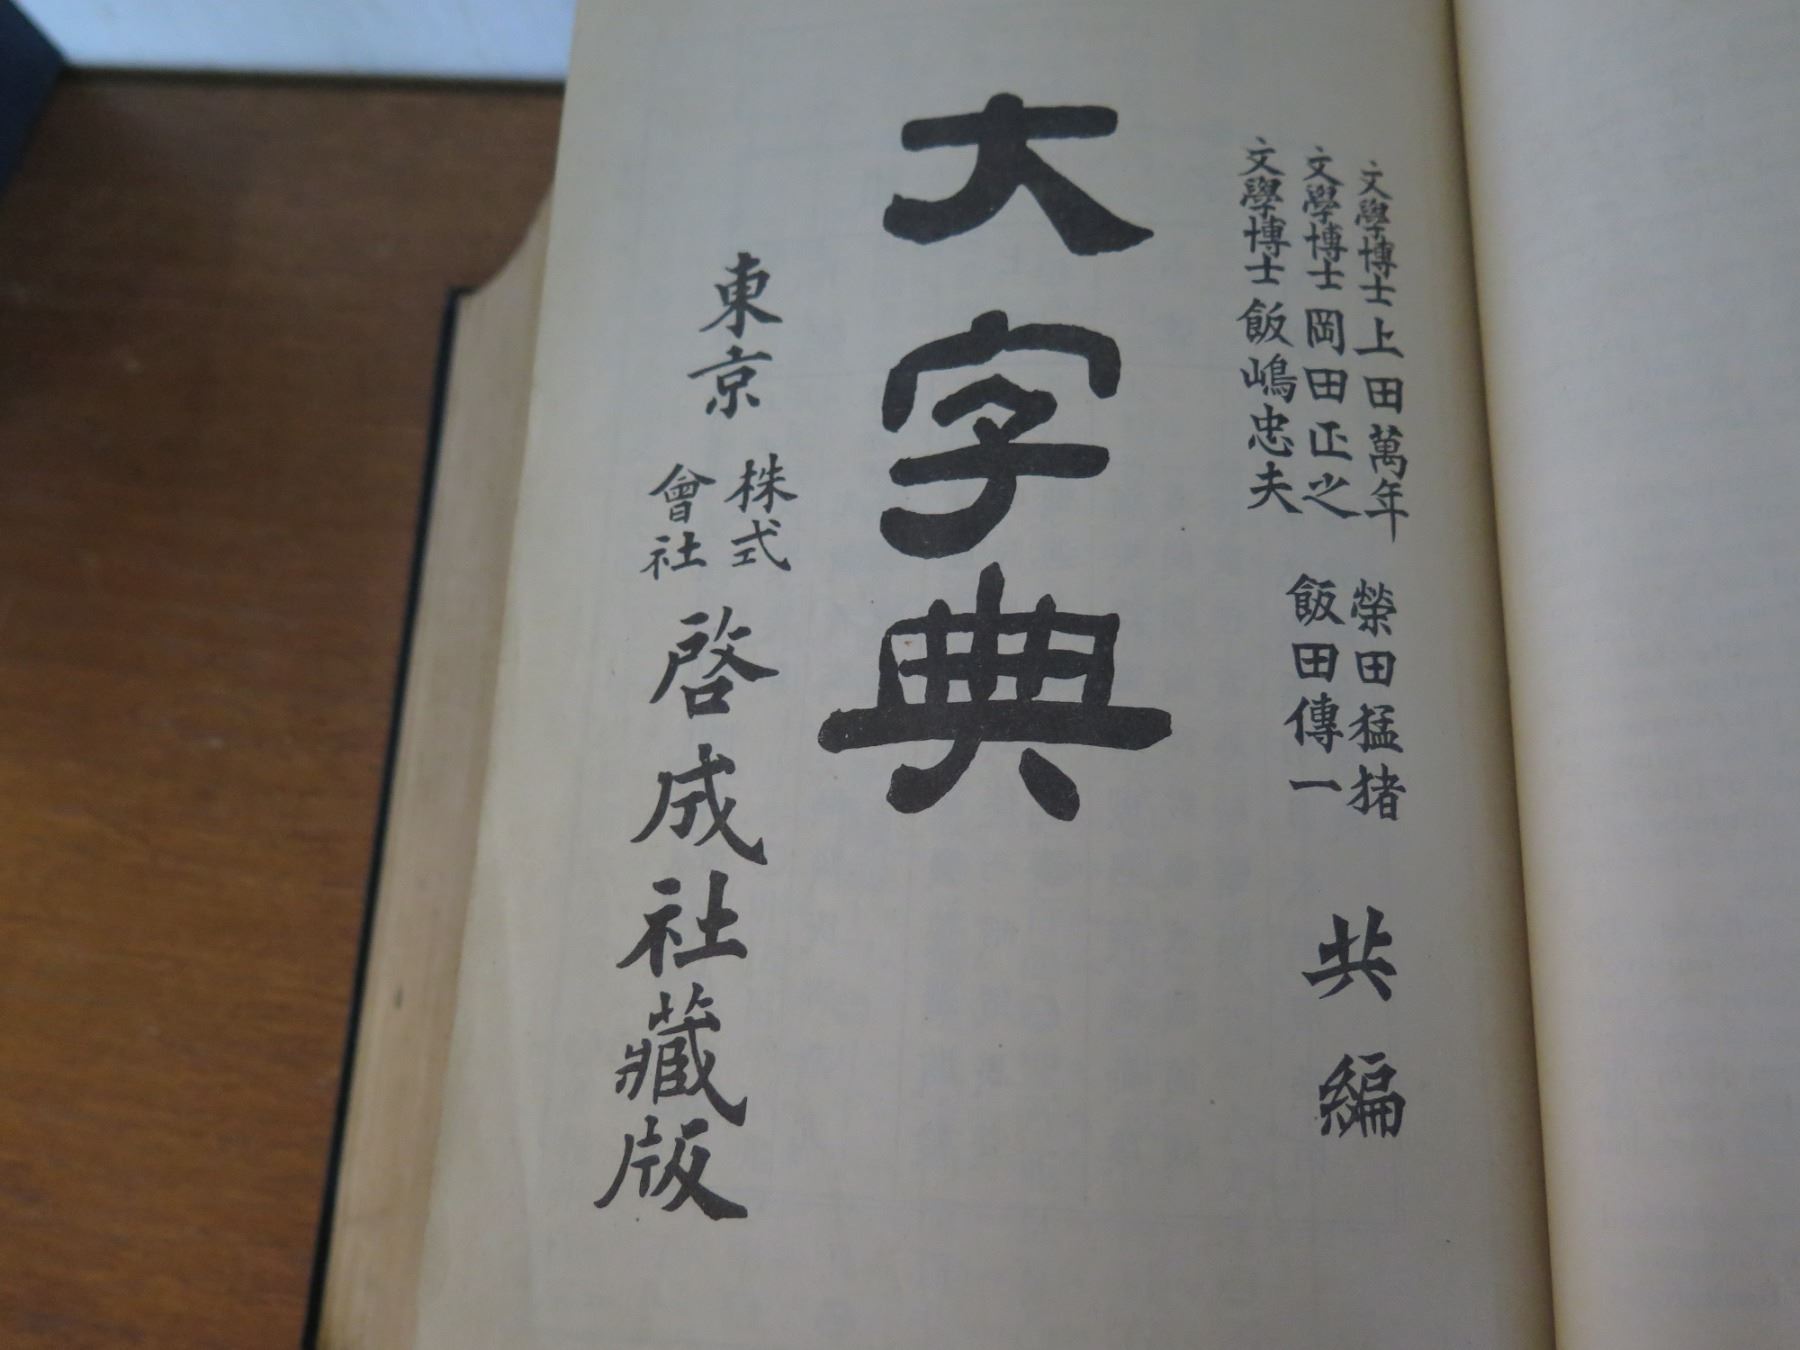 文學博士 上田萬年
文學博士 岡田正之
文學博士 飯嶋忠夫
榮田猛猪
飯田傳一
共編
大字典
東京
株式
會社
啓成社藏版